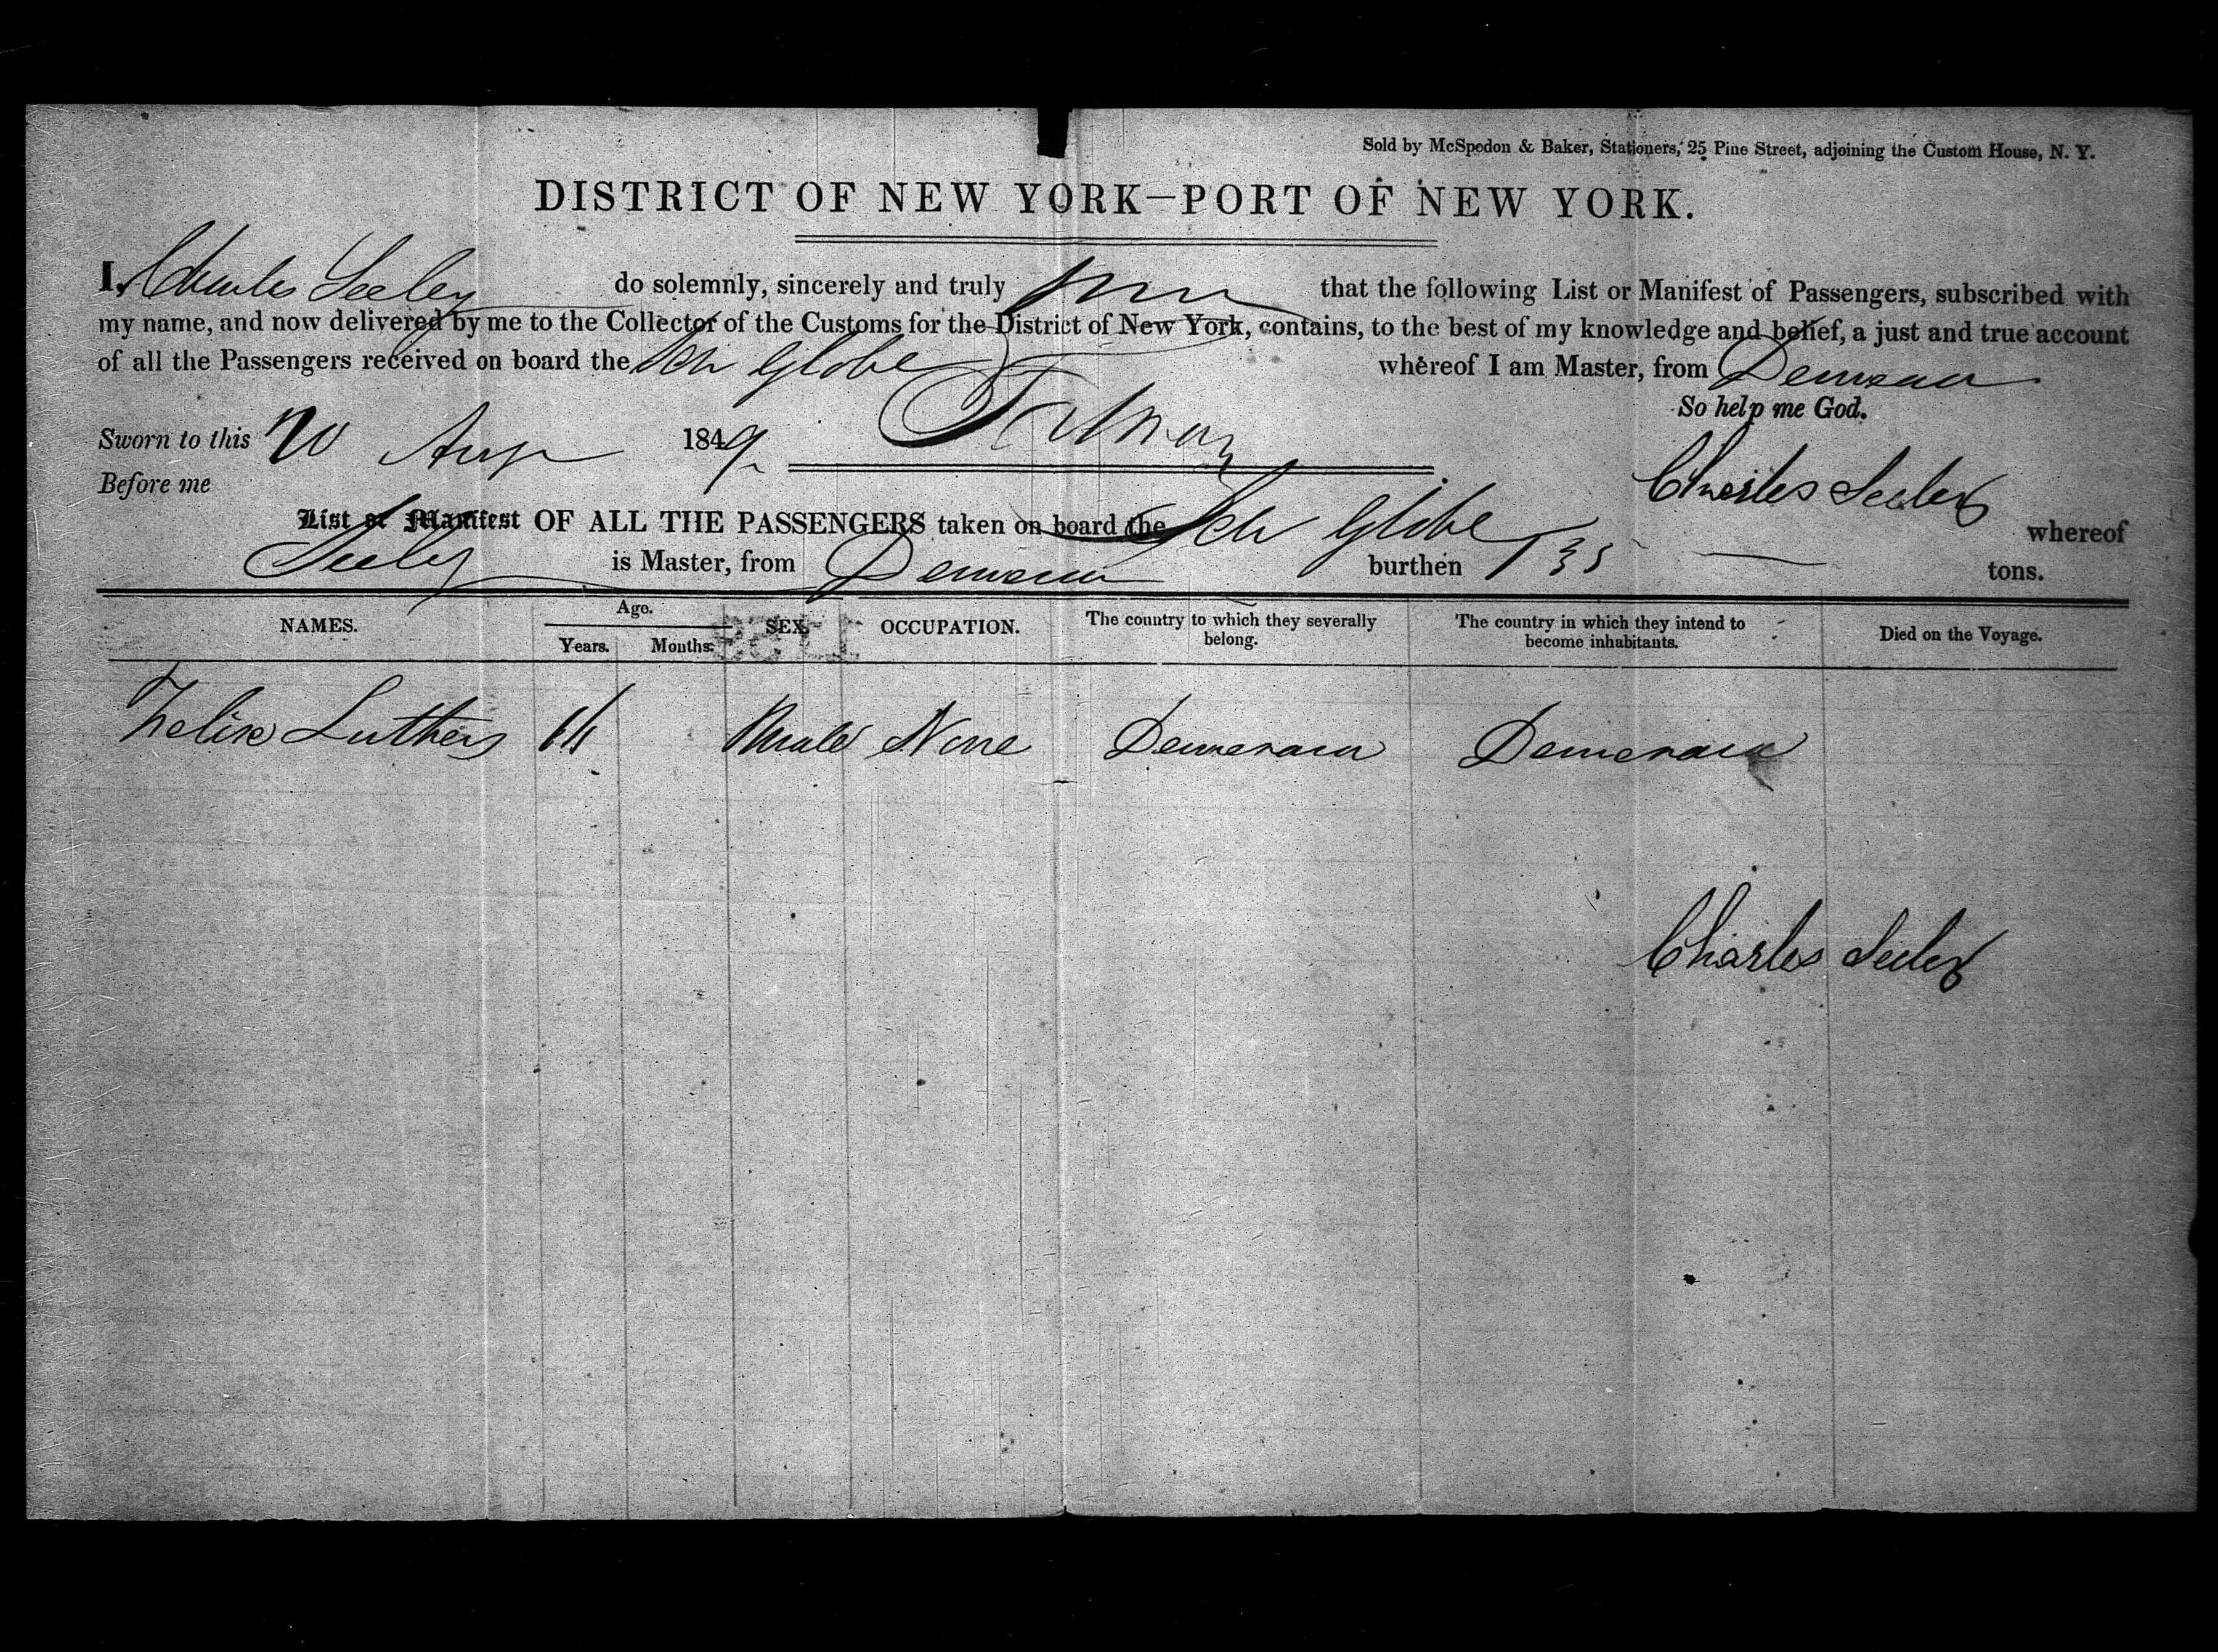 Sold by McSpedon & Baker, Stationers, 25 Pine Street, adjoining the Custom House, N. Y.
DISTRICT OF NEW YORK—PORT OF NEW YORK.
I, Charles Seeley do solemnly, sincerely and truly that the following List or Manifest of Passengers, subscribed with
my name, and now delivered by me to the Collector of the Customs for the District of New York, contains, to the best of my knowledge and belief, a just and true account
of all the Passengers received on board the Sch Globe whereof I am Master, from Demerara
So help me God.
Sworn to this 20 Aug 1849
Before me
Charles Seeley
List or Manifest OF ALL THE PASSENGERS taken on board the Sch Globe whereof
Seeley is Master, from Demerara burthen 135 tons.
NAMES. Age. Years. Months. SEX. OCCUPATION. The country to which they severally belong. The country in which they intend to become inhabitants. Died on the Voyage.
Luthers Male None Demerara Demerara
Charles Seeley